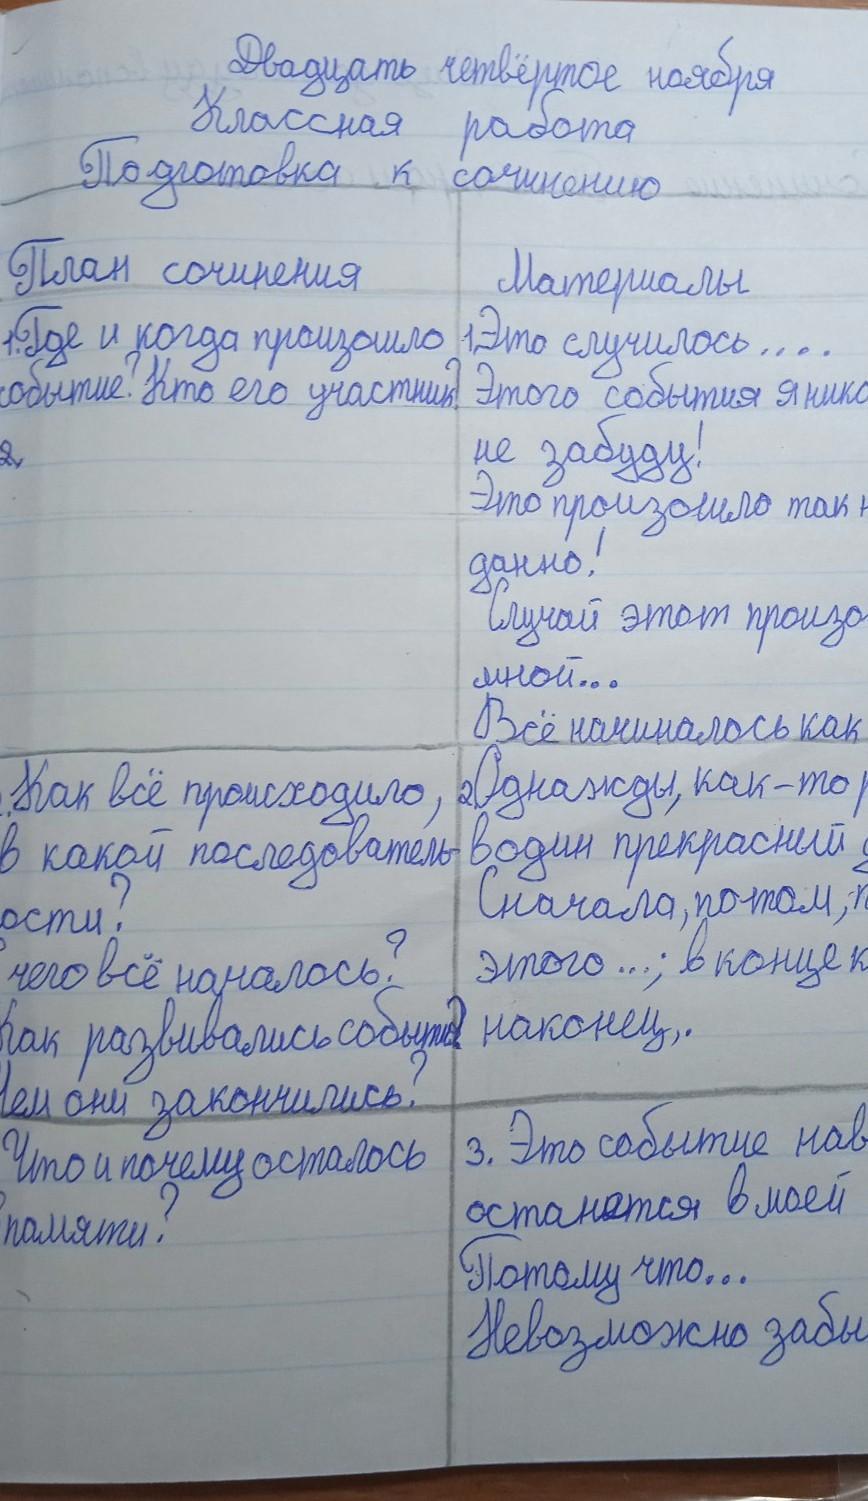 Двадцать четвёртое ноября
Классная работа
Подготовка к сочинению
План сочинения
1. Где и когда произошло
событие? Кто его участник?
2.
Как всё происходило,
в какой последователь-
ости?
чего всё началось?
Как развивались события?
Чем они закончились?
Что и почему осталось
памяти?
Материалы
1. Это случилось....
Этого события я нико
не забуду!
Это произошло так н
данно!
Случай этот произо
мной...
Всё начиналось как
2. Однажды, как-то р
в один прекрасный д
Сначала, потом, п
этого...; в конце к
наконец,.
3. Это событие нав
останется в моей
Потому что...
Невозможно забы